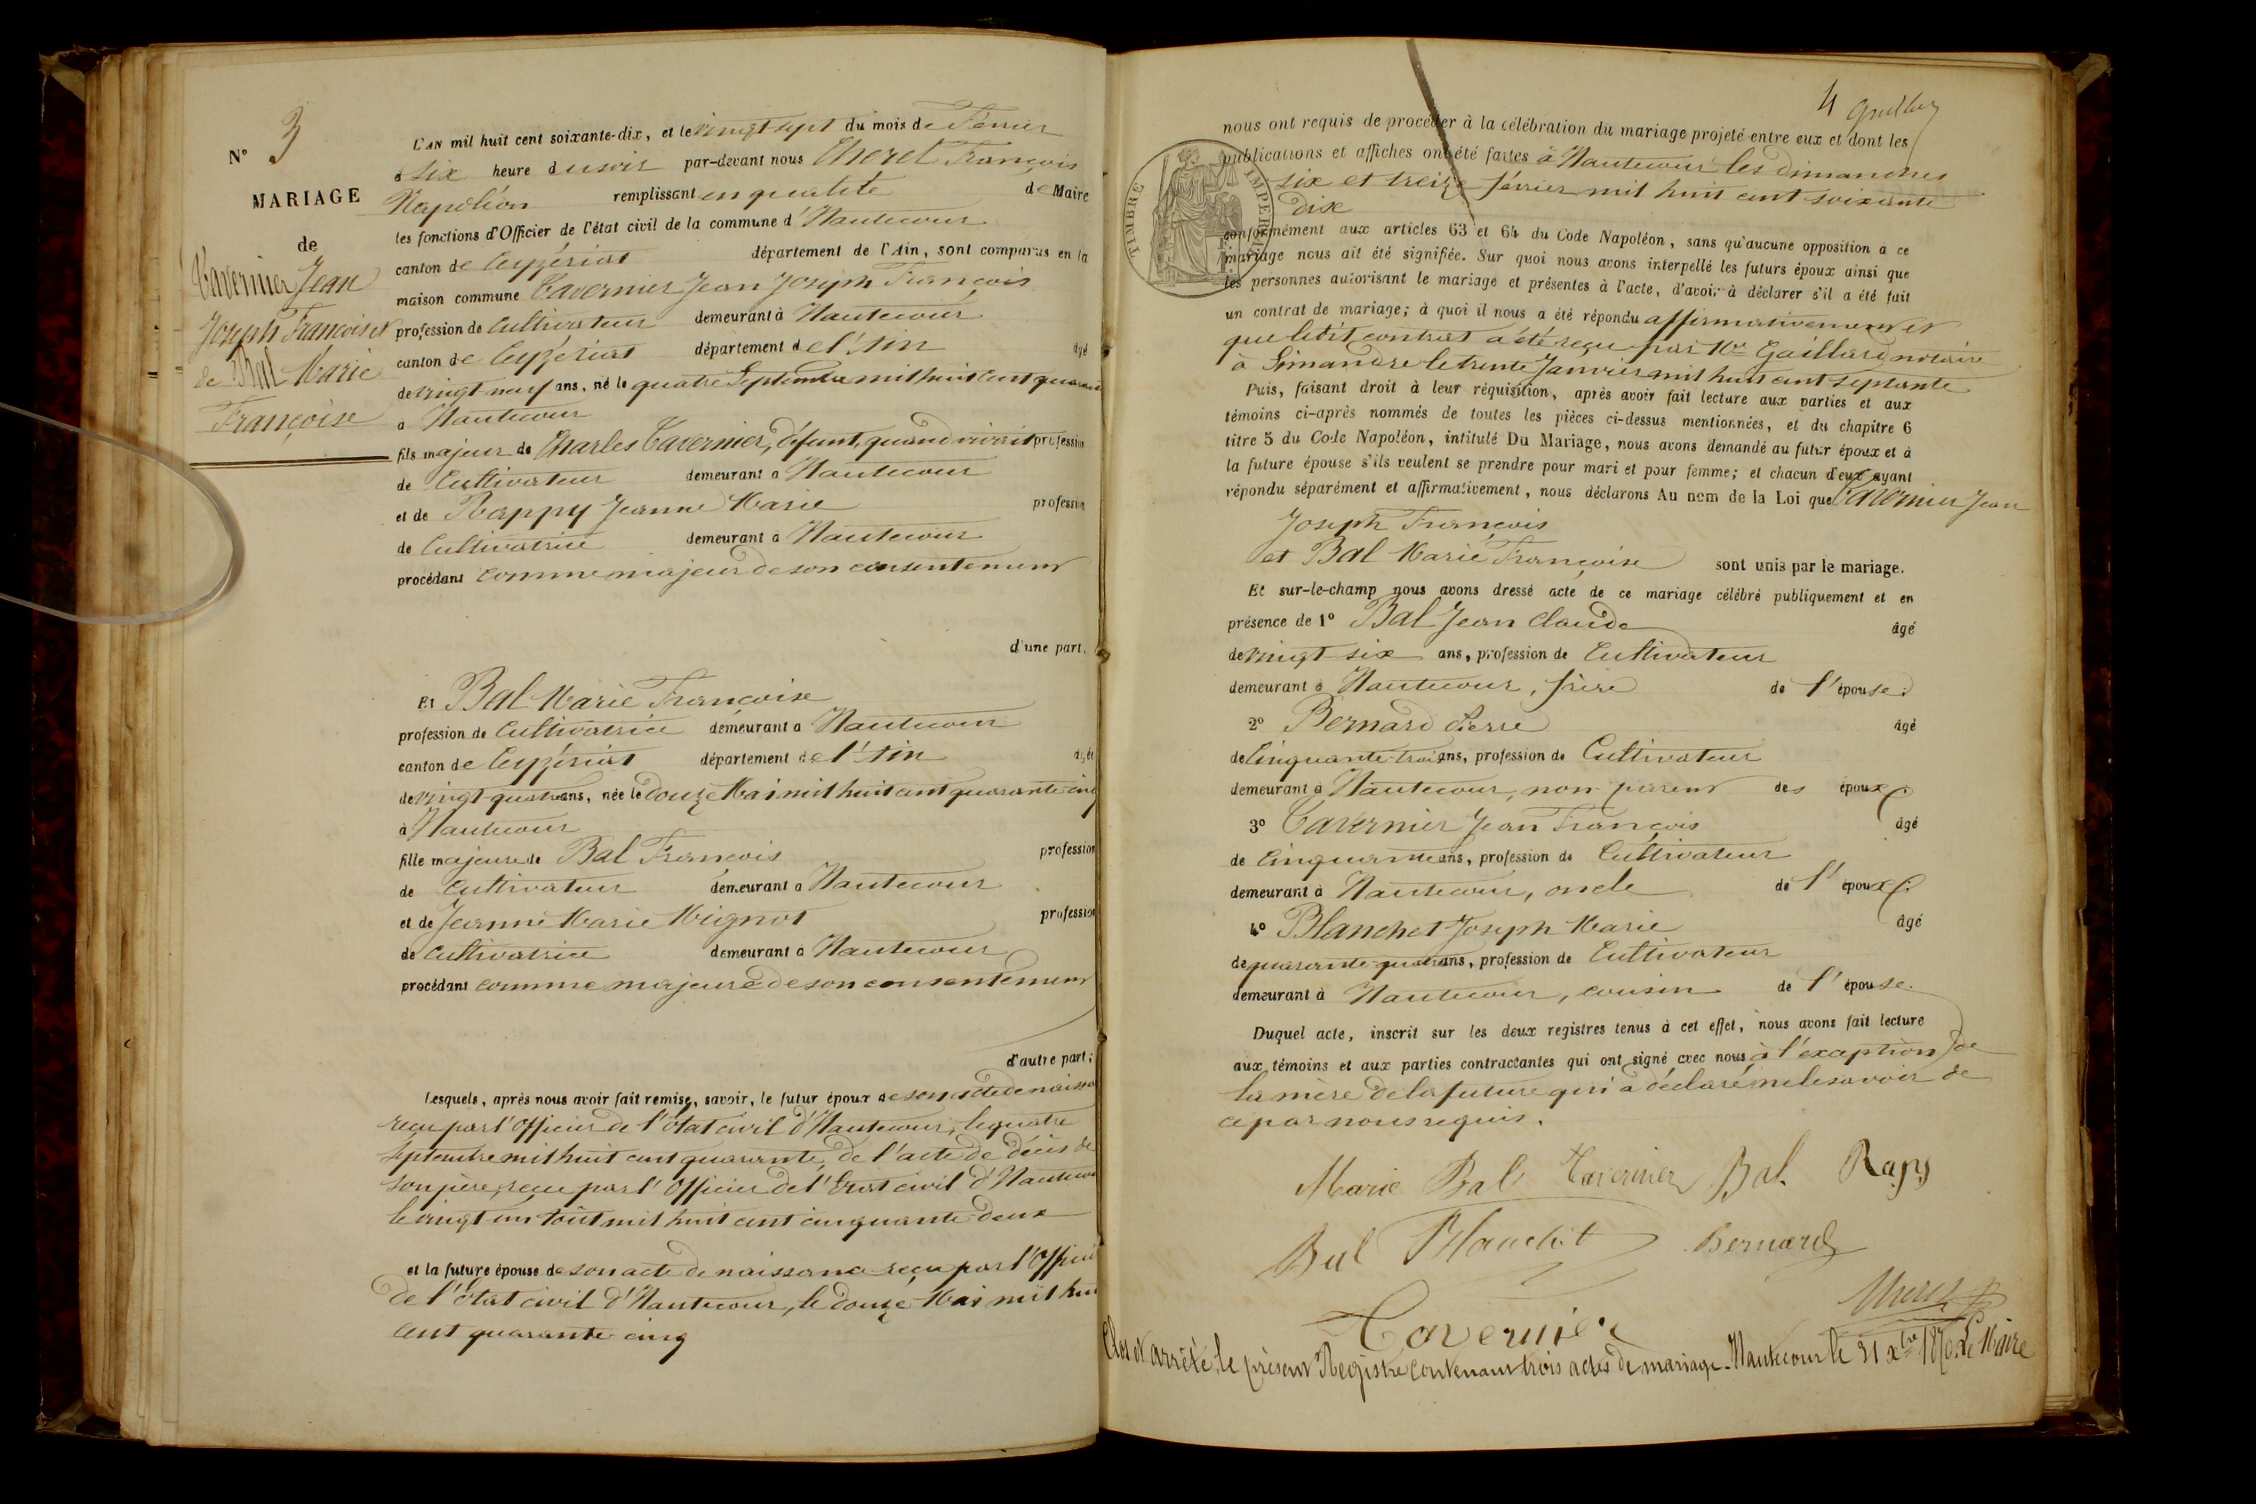 N° 3
MARIAGE
de
Tavernier Jean
Joseph François et
de Bal Marie
Françoise
L'AN mil huit cent soixante-dix, et le vingt sept du mois de Février
à six heure du soir par-devant nous Theret François
Napoléon remplissant en qualité de Maire
les fonctions d'Officier de l'état civil de la commune d'Hautecour
canton de Ceyzériat département de l'Ain, sont comparus en la
maison commune Tavernier Jean Joseph François
profession de Cultivateur demeurant à Hautecour
canton de Ceyzériat département de l'Ain âgé
de vingt neuf ans, né le quatre Septembre mil huit cent quarante
à Hautecour
fils majeur de Charles Tavernier, défunt, quand vivait profession
de Cultivateur demeurant à Hautecour
et de Rappy Jeanne Marie profession
de Cultivatrice demeurant à Hautecour
procédant comme majeur de son consentement
d'une part.
Et Bal Marie Françoise
profession de Cultivatrice demeurant à Hautecour
canton de Ceyzériat département de l'Ain âgée
de vingt quatre ans, née le douze Mai mil huit cent quarante cinq
à Hautecour
fille majeure de Bal François profession
de Cultivateur demeurant à Hautecour
et de Jeanne Marie Mignot profession
de Cultivatrice demeurant à Hautecour
procédant comme majeure de son consentement
d'autre part;
Lesquels, après nous avoir fait remise, savoir, le futur époux de son acte de naissa
reçu par l'Officier de l'état civil d'Hautecour, le quatre
Septembre mil huit cent quarante, de l'acte de décès de
son père, reçu par l'Officier de l'Etat civil d'Hautecour
le vingt un Août mil huit cent cinquante deux
et la future épouse de son acte de naissance reçu par l'Offici
de l'état civil d'Hautecour, le douze Mai mil hui
cent quarante cinq
4
nous ont requis de procéder à la célébration du mariage projeté entre eux et dont les
publications et affiches ont été faites à Hautecour les dimanches
six et treize février mil huit cent soixante
dix
TIMBRE IMPERIAL
conformément aux articles 63 et 64 du Code Napoléon, sans qu'aucune opposition a ce
mariage nous ait été signifiée. Sur quoi nous avons interpellé les futurs époux ainsi que
les personnes autorisant le mariage et présentes à l'acte, d'avoir à déclarer s'il a été fait
un contrat de mariage; à quoi il nous a été répondu affirmativement et
que ledit contrat a été reçu par Me Gaillard notaire
à Simandre le trente Janvier mil huit cent septante
Puis, faisant droit à leur réquisition, après avoir fait lecture aux parties et aux
témoins ci-après nommés de toutes les pièces ci-dessus mentionnées, et du chapitre 6
titre 5 du Code Napoléon, intitulé Du Mariage, nous avons demandé au futur époux et à
la future épouse s'ils veulent se prendre pour mari et pour femme; et chacun d'eux ayant
répondu séparément et affirmativement, nous déclarons Au nom de la Loi que Tavernier Jean
Joseph François
et Bal Marie Françoise sont unis par le mariage.
Et sur-le-champ nous avons dressé acte de ce mariage célébré publiquement et en
présence de 1° Bal Jean Claude âgé
de vingt six ans, profession de Cultivateur
demeurant à Hautecour, frère de l'épouse.
2° Bernard Pierre âgé
de Cinquante trois ans, profession de Cultivateur
demeurant à Hautecour, non parent des époux
3° Tavernier Jean François âgé
de Cinquante ans, profession de Cultivateur
demeurant à Hautecour, oncle de l'époux
4° Blanchet Joseph Marie âgé
de quarante quatre ans, profession de Cultivateur
demeurant à Hautecour, cousin de l'épouse.
Duquel acte, inscrit sur les deux registres tenus à cet effet, nous avons fait lecture
aux témoins et aux parties contractantes qui ont signé avec nous à l'exception de
la mère de la future qui a déclaré ne le savoir de
ce par nous requis.
Marie Bal Tavernier Bal Rapy
Bal Blanchet Bernard
Theret
Tavernier
Clos et arrêté le présent Registre contenant trois actes de mariage. Hautecour le 31 xbre 1870. Le Maire